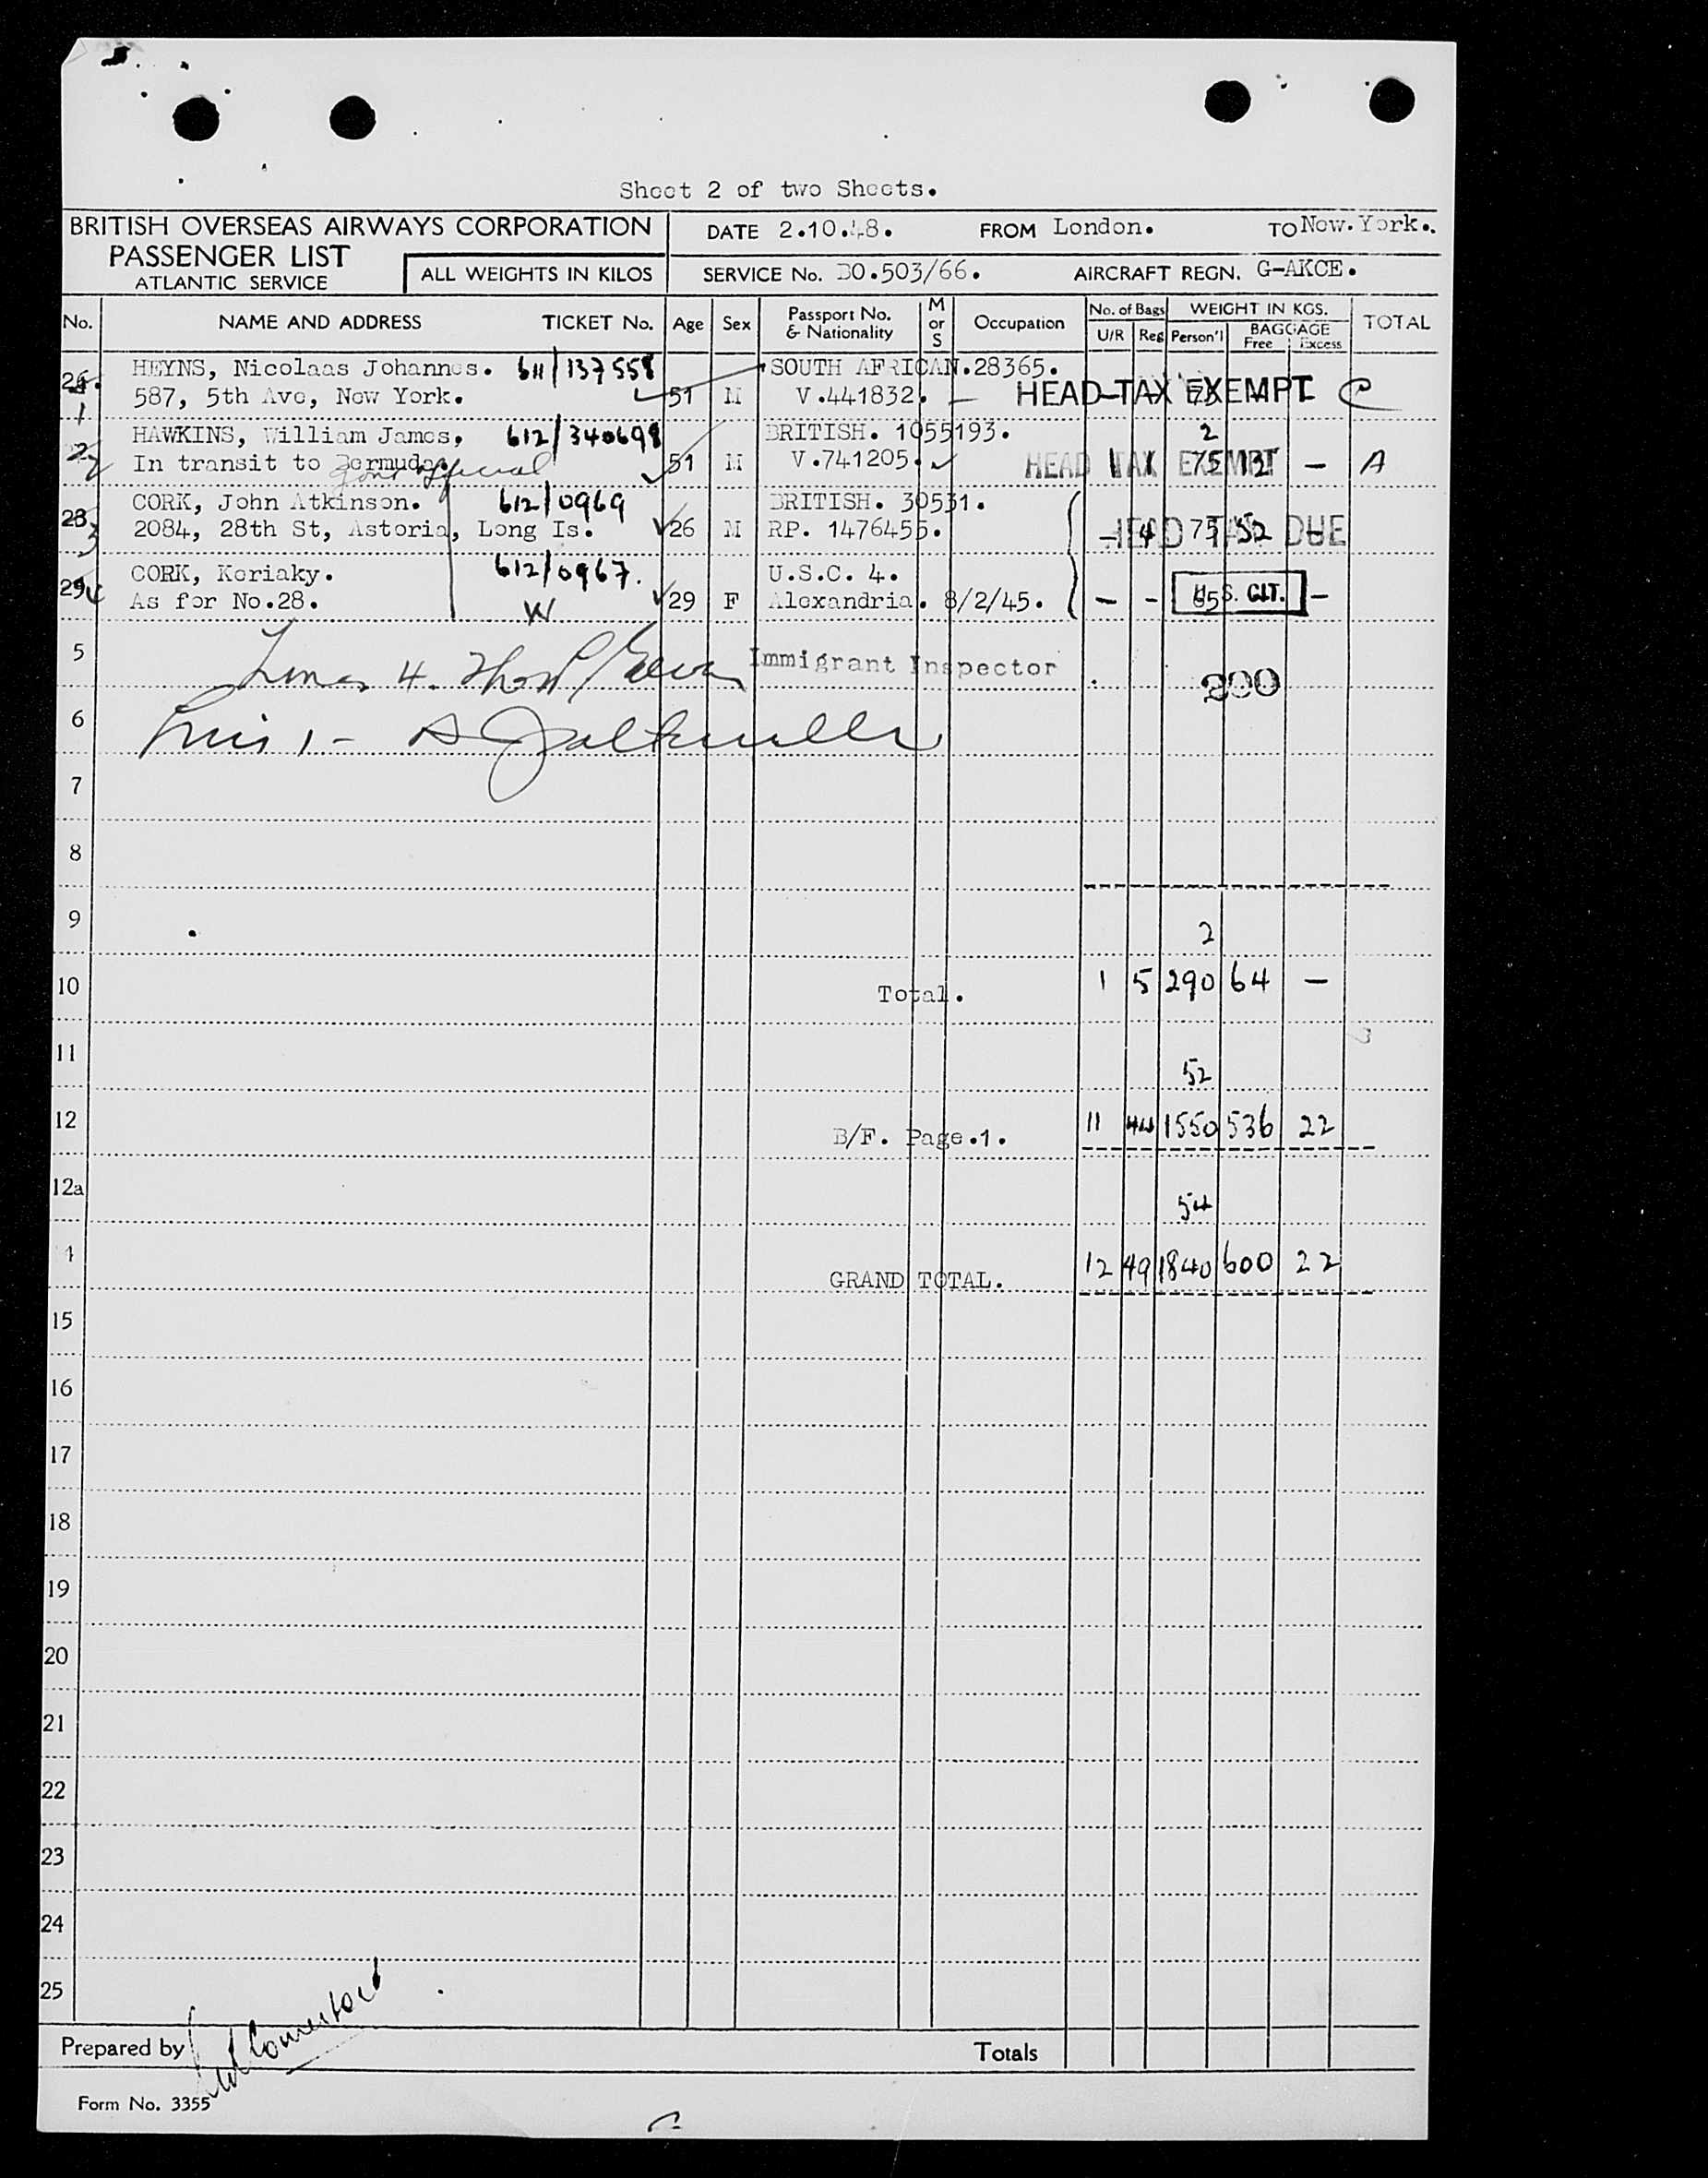 Sheet 2 of two Sheets.
BRITISH OVERSEAS AIRWAYS CORPORATION
PASSENGER LIST
ATLANTIC SERVICE
ALL WEIGHTS IN KILOS
DATE 2.10.48. FROM London. TO New.York..
SERVICE No. BO.503/66. AIRCRAFT REGN. G-AKCE.
No. NAME AND ADDRESS TICKET No. Age Sex Passport No. & Nationality M or S Occupation No. of Bags U/R Reg WEIGHT IN KGS. Person'l BAGGAGE Free Excess TOTAL
HEYNS, Nicolaas Johannes. 611/137558 SOUTH AFRICAN.28365.
1 587, 5th Ave, New York. 51 M V.441832. — HEAD TAX EXEMPT C
HAWKINS, William James, 612/340698 BRITISH. 1055193. 2
2 In transit to Bermuda. 51 M V.741205. HEAD TAX EXEMPT 1 1 75 12 — A
CORK, John Atkinson. 612/0969 BRITISH. 30531.
28 3 2084, 28th St, Astoria, Long Is. 26 M RP. 1476455. HEAD TAX DUE — 4 75 52 —
CORK, Keriaky. 612/0967. U.S.C. 4.
29 4 As for No.28. W 29 F Alexandria. 8/2/45. — - 65 U.S. CIT. —
5 Immigrant Inspector
290
6
7
8
9 2
10 Total. 1 5 290 64 —
11 52
12 B/F. Page.1. 11 44 1550 536 22
12a 54
GRAND TOTAL. 12 49 1840 600 22
15
16
17
18
19
20
21
22
23
24
25
Prepared by Totals
Form No. 3355